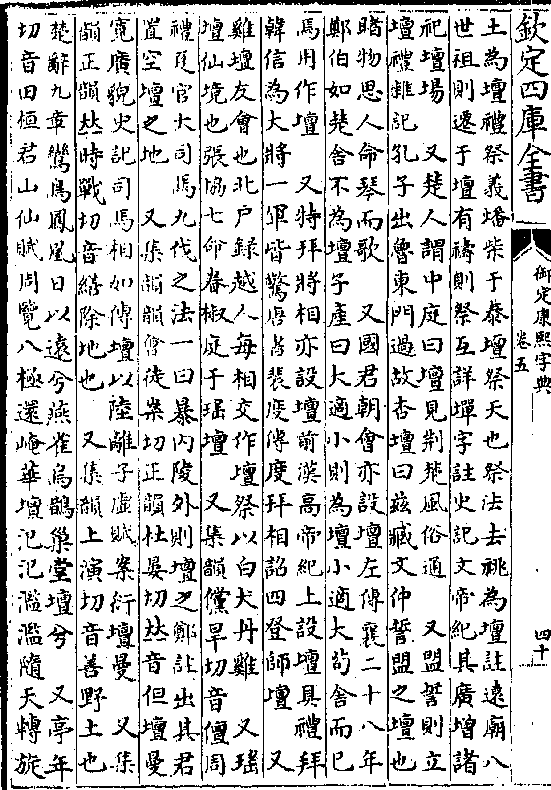 欽定四庫全書
御定康熙字典
卷五
四十
土為壇禮祭義燔柴于泰壇祭天也祭法去祧為壇註遠廟八
世祖則遷于壇有禱則祭互詳墠字註史記文帝紀其廣增諸
祀壇場　又楚人謂中庭曰壇見荆楚風俗通　又盟誓則立
壇禮雜記孔子出魯東門過故杏壇曰兹臧文仲誓盟之壇也
睹物思人命琴而歌　又國君朝會亦設壇左傳襄二十八年
鄭伯如楚舍不為壇子產曰大適小則為壇小適大苟舍而已
焉用作壇　又特拜將相亦設壇前漢高帝紀上設壇具禮拜
韓信為大將一軍皆驚唐書裴度傳度拜相詔四登師壇　又
雞壇友會也北户錄越人每相交作壇祭以白犬丹雞　又瑤
壇仙境也張協七命春椒庭于瑶壇　又集韻儻旱切音儃周
禮夏官大司馬九伐之法一曰暴内陵外則壇之鄭註出其君
置空壇之地　又集韻韻會徒案切正韻杜晏切𠀤音但壇曼
寛廣貌史記司馬相如傳壇以陸離子虛賦案衍壇曼　又集
韻正韻𠀤時戰切音繕除地也　又集韻上演切音善野土也
楚辭九章鸞鳥鳳凰日以遠兮燕雀烏鵲巢堂壇兮　又亭年
切音田桓君山仙賦周覽八極還崦華壇氾氾濫濫隨天轉旋